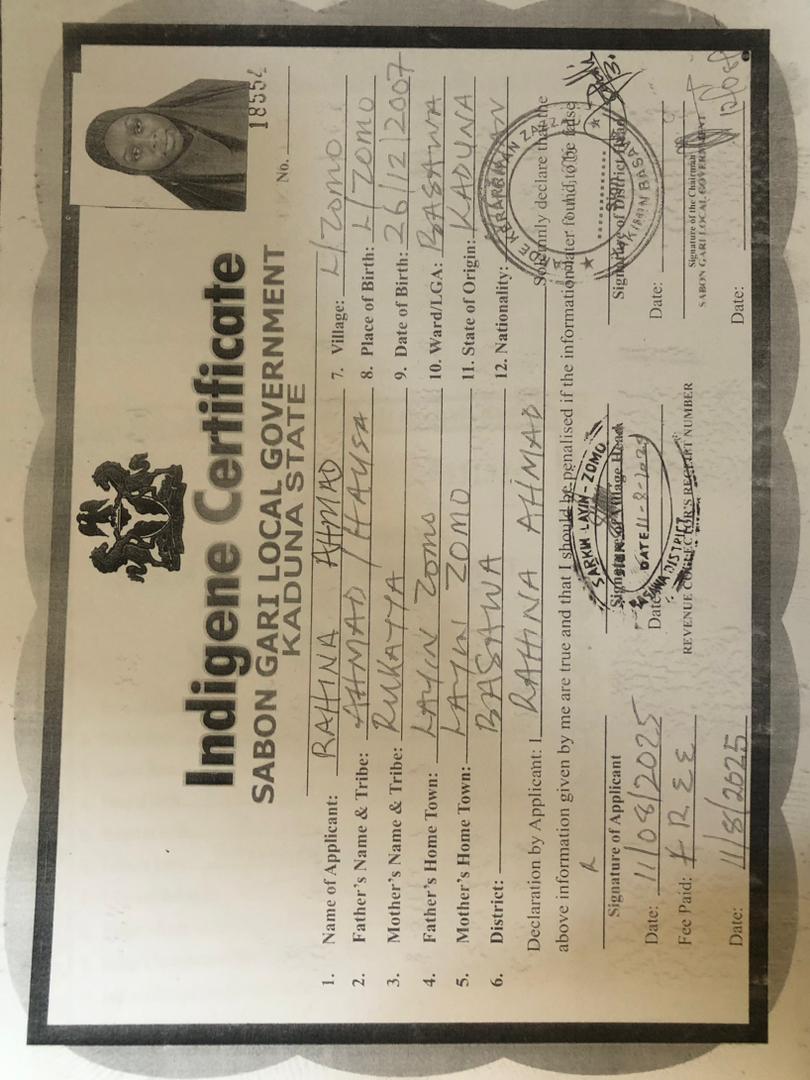 No. 18552
Indigene Certificate
SABON GARI LOCAL GOVERNMENT
KADUNA STATE
1. Name of Applicant: RAHINA AHMAD
2. Father's Name & Tribe: AHMAD / HAUSA
3. Mother's Name & Tribe: RUKAYYA
4. Father's Home Town: LAYIN ZOMO
5. Mother's Home Town: LAYIN ZOMO
6. District: BASAWA
7. Village: L/ZOMO
8. Place of Birth: L/ZOMO
9. Date of Birth: 26/12/2007
10. Ward/LGA: BASAWA
11. State of Origin: KADUNA
12. Nationality:
Declaration by Applicant: I RAHINA AHMAD Solemnly declare that the
above information given by me are true and that I should be penalised if the information later found to be false
R
Signature of Applicant
Date: 11/08/2025
Fee Paid: FREE
Date: 11/8/2025
SARKIN LAYIN-ZOMO
Signature of Village Head
DATE 11-8-2025
BASAWA DISTRICT
Date:
REVENUE COLLECTOR'S RECEIPT NUMBER
Signature of District Head
SIGN
HAKIMIN BASAWA
Date:
Signature of the Chairman
SABON GARI LOCAL GOVERNMENT
Date: